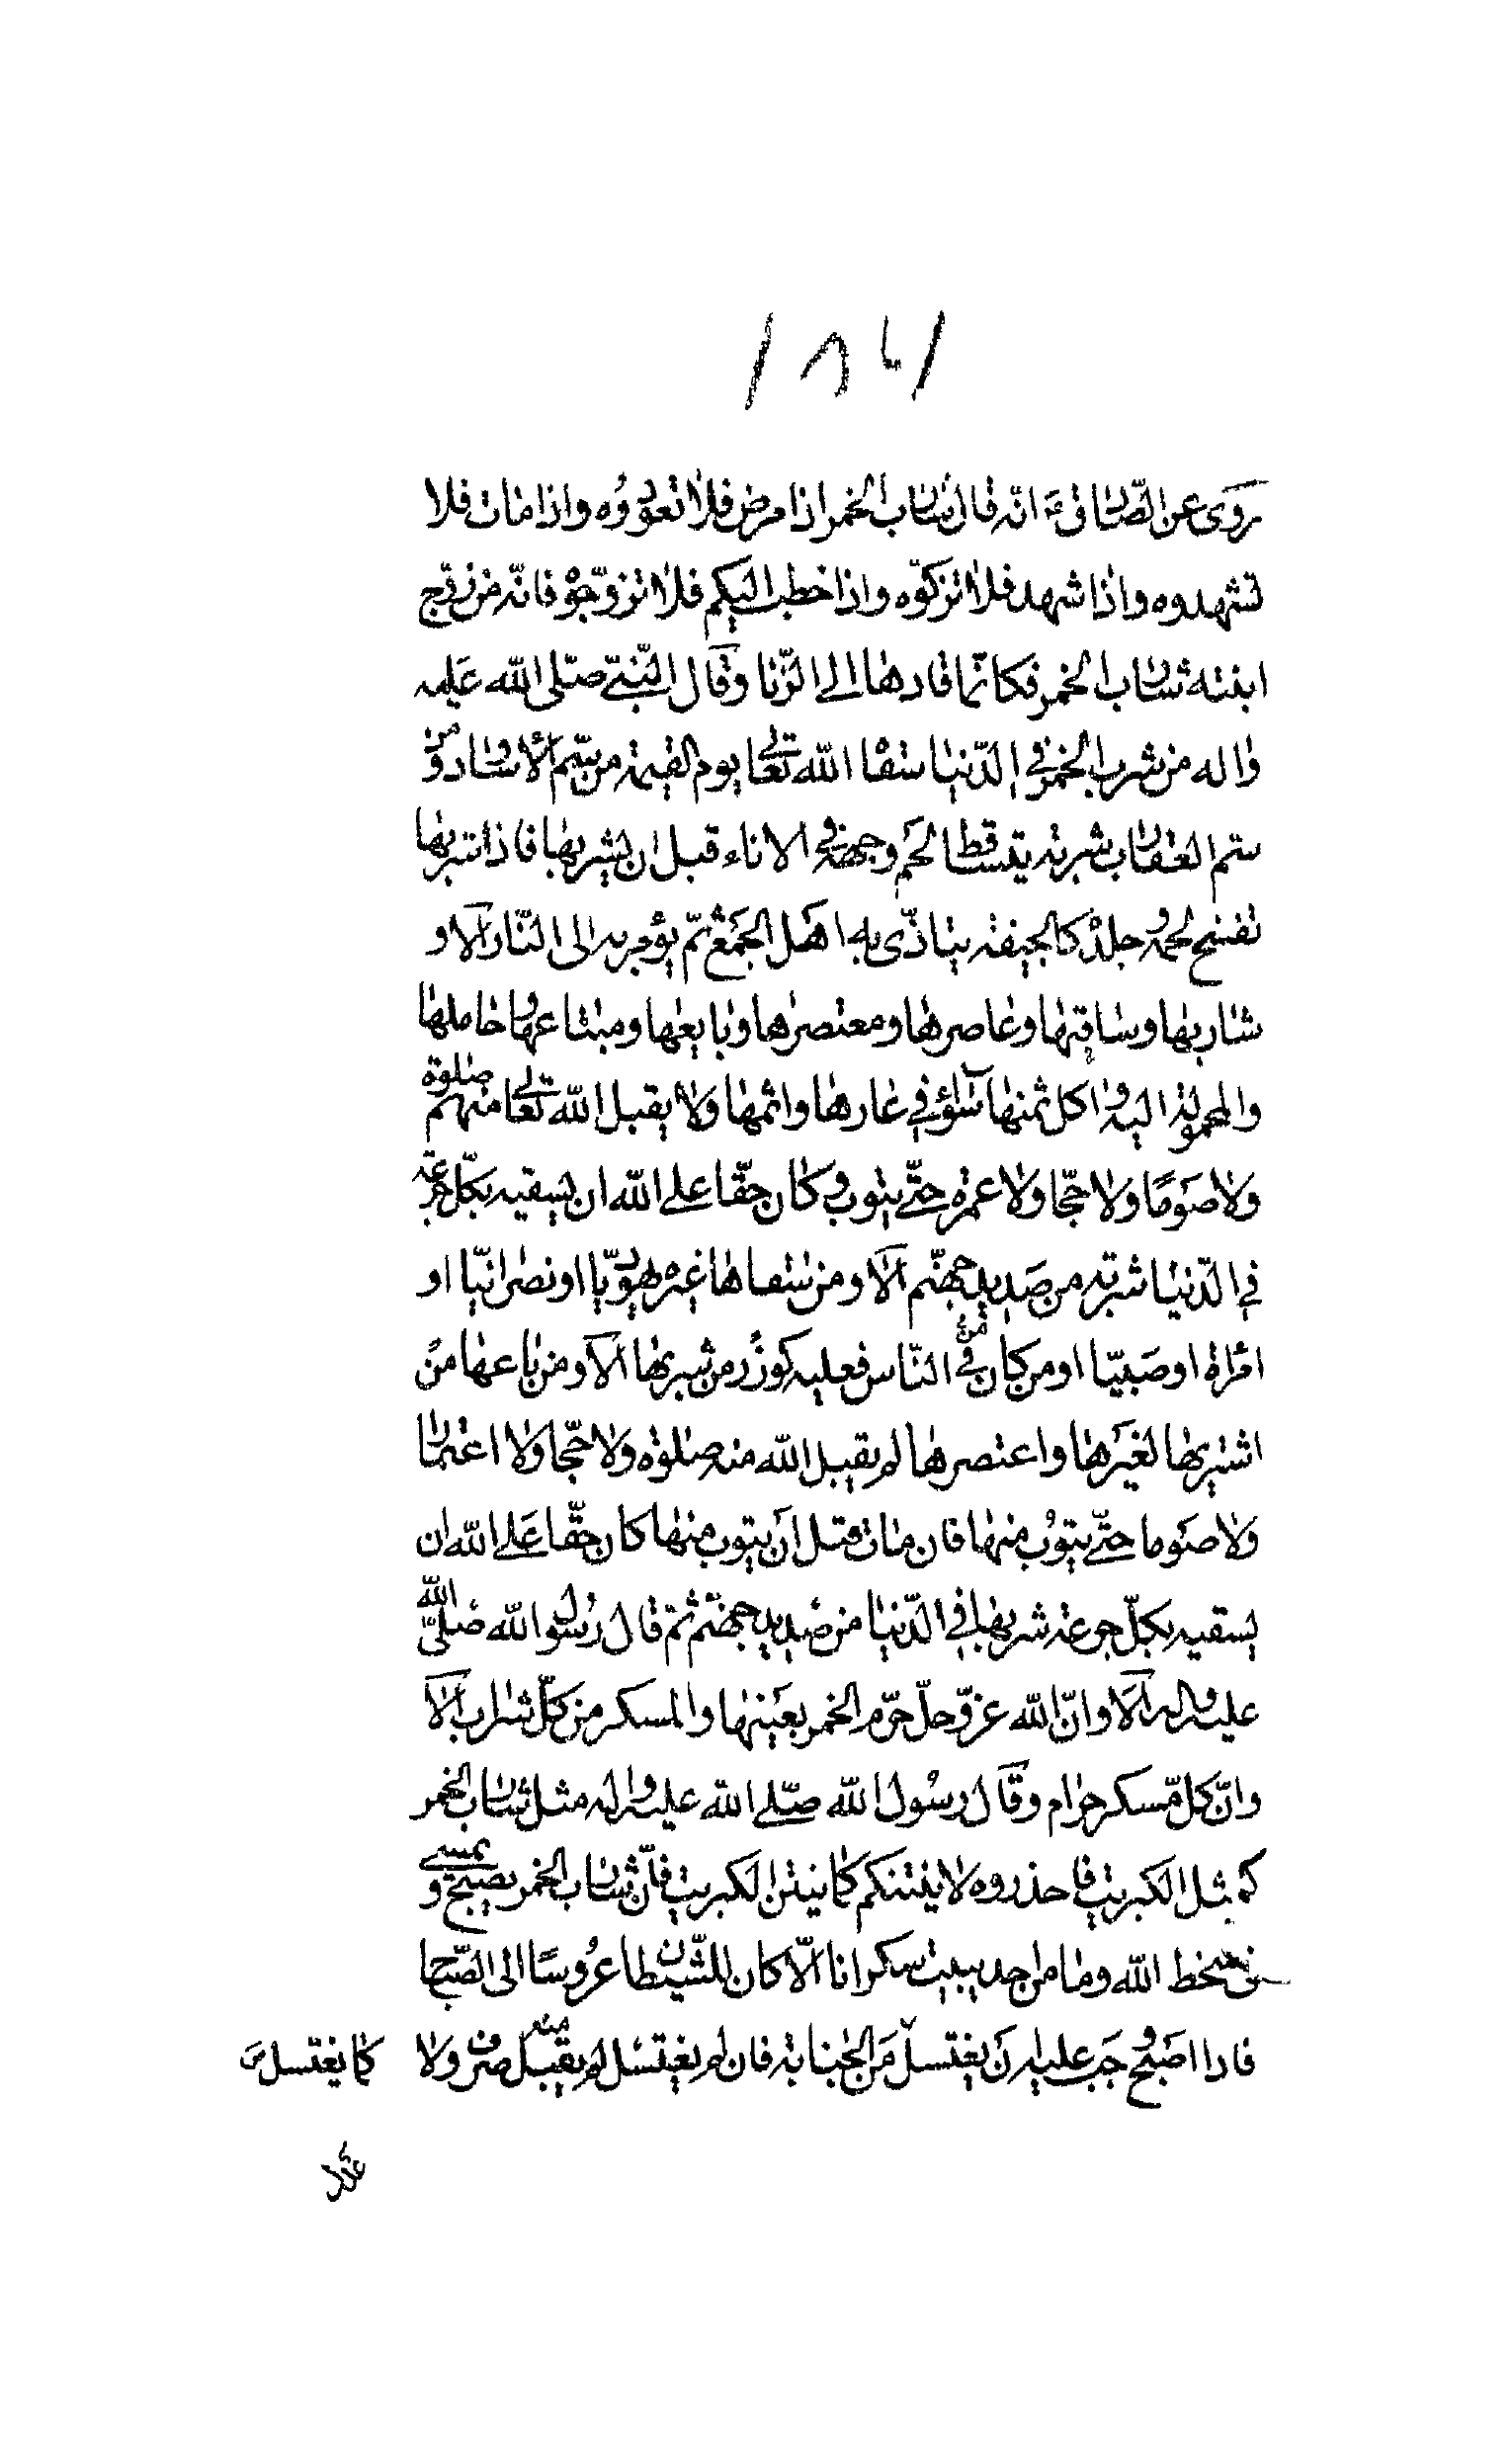 روى عن الصّادق ع انّه قال شارب الخمر اذا مرض فلا تعودوه واذا مات فلا
تشهدوه واذا شهد فلا تزكّوه واذا خطب اليكم فلا تزوّجوه فانّه من زوّج
ابنته شارب الخمر فكانّما قادها الى الزّنا وقال النّبيّ صلّى الله عليه
واله من شرب الخمر في الدّنيا سقاه الله تعالى يوم القيمة من سمّ الاساود ومن
سم العقارب شربة يتساقط لحم وجهه في الاناء قبل ان يشربها فاذا شربها
تفسّخ لحمه وجلده كالجيفة يتاذّى به اهل الجمع ثمّ يؤمر به الى النّار الا و
شاربها وساقيها وعاصرها ومعتصرها وبايعها ومبتاعها وحاملها
والمحمولة اليه واكل ثمنها سواء في عارها واثمها ولا يقبل الله تعالى منهم صلوة
ولا صوما ولا حجّا ولا عمرة حتّى يتوب وكان حقّا على الله ان يسقيه بكلّ جرعة
في الدّنيا شربة من صديد جهنّم الا ومن سقاها غيره يهوديّا او نصرانيّا او
امراة او صبيّا او من كان من في النّاس فعليه كوزر من شربها الا ومن باعها من
اشتريها لغيرها واعتصرها لم يقبل الله منه صلوة ولا حجّا ولا اعتمارا
ولا صوما حتّى يتوب منها فان مات قبل ان يتوب منها كان حقّا على الله ان
يسقيه بكلّ جرعة شربها في الدّنيا من صديد جهنّم ثمّ قال رسول الله صلّى الله
عليه واله الا وانّ الله عزّ وجلّ حرّم الخمر بعينها والمسكر من كلّ شراب الا
وانّ كلّ مسكر حرام وقال رسول الله صلّى الله عليه واله مثل شارب الخمر
كمثل الكبريت فاحذروه لا ينتنكم كما ينتن الكبريت فانّ شارب الخمر يصبح ويمسي
في سخط الله وما من احد يبيت سكرانا الّا كان للشّيطان عروسا الى الصّباح
فاذا اصبح وجب عليه ان يغتسل من الجنابة فان لم يغتسل لم يقبل منه صرف ولا كما يغتسل من
عدل